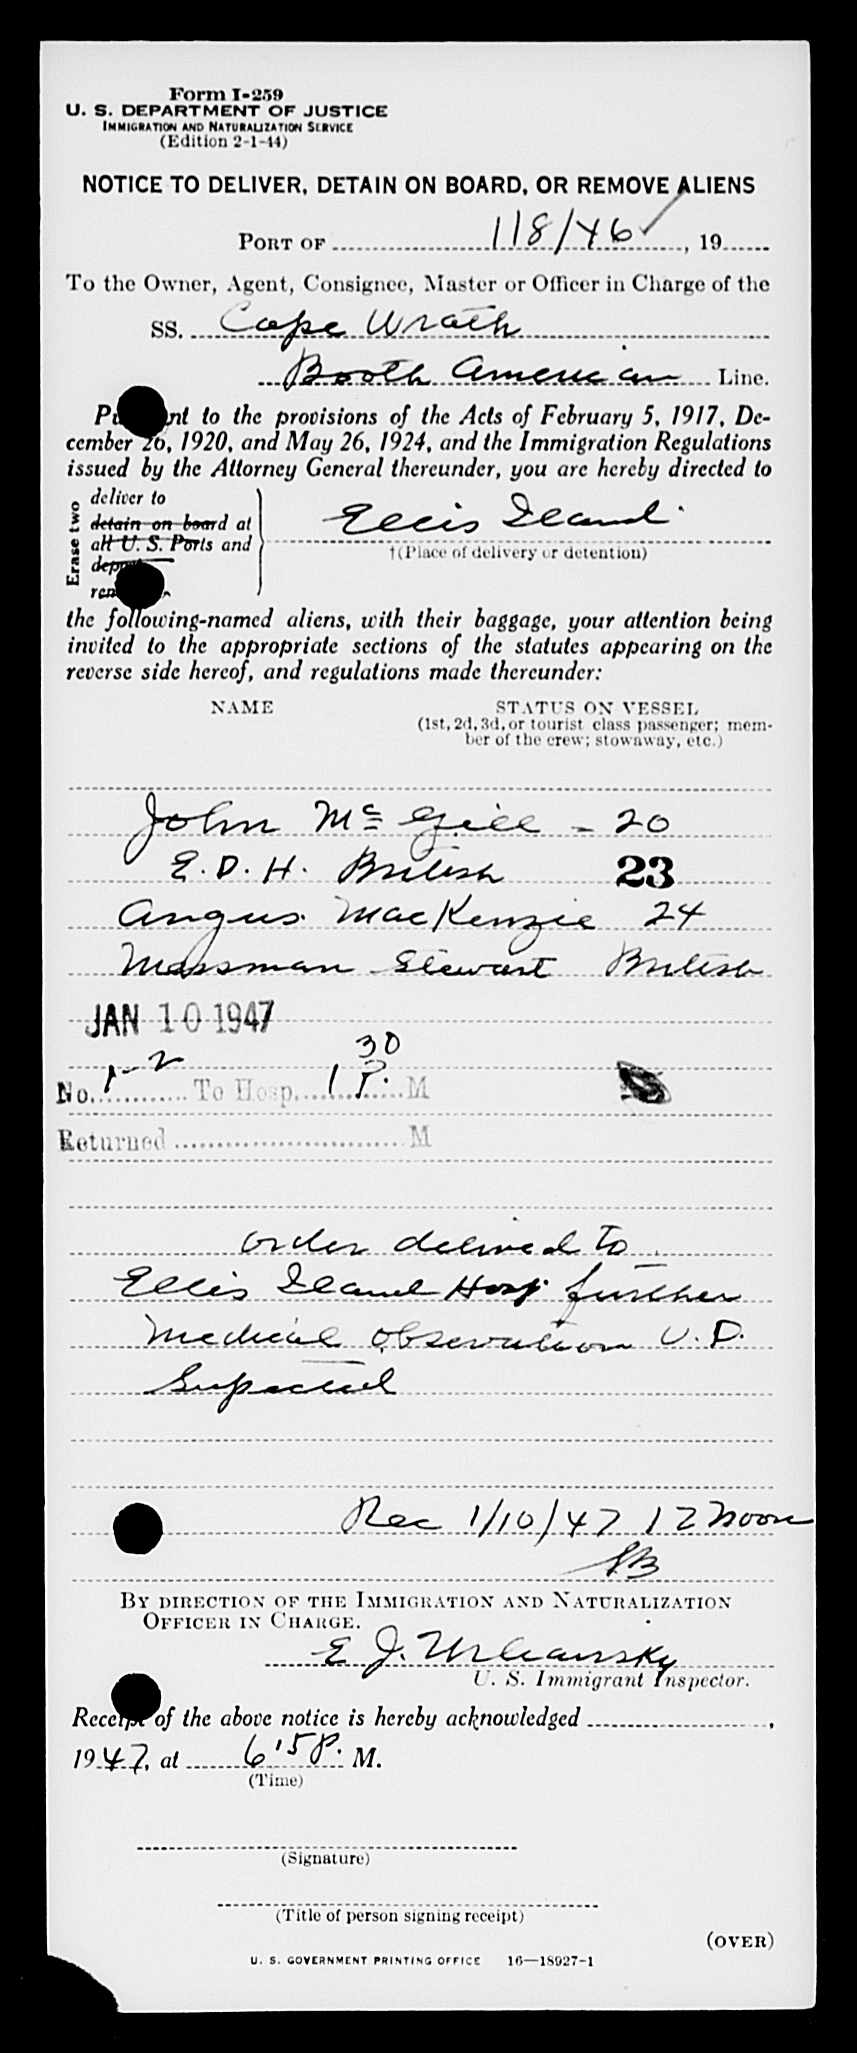 Form I-259
U. S. DEPARTMENT OF JUSTICE
IMMIGRATION AND NATURALIZATION SERVICE
(Edition 2-1-44)
NOTICE TO DELIVER, DETAIN ON BOARD, OR REMOVE ALIENS
PORT OF 118/46, 19
To the Owner, Agent, Consignee, Master or Officer in Charge of the
SS. Cape Wrath
Booth American Line.
to the provisions of the Acts of February 5, 1917, De-
cember 26, 1920, and May 26, 1924, and the Immigration Regulations
issued by the Attorney General thereunder, you are hereby directed to
Erase two
deliver to
detain on board at
all U. S. Ports and
Ellis Island
†(Place of delivery or detention)
the following-named aliens, with their baggage, your attention being
invited to the appropriate sections of the statutes appearing on the
reverse side hereof, and regulations made thereunder:
NAME STATUS ON VESSEL
(1st, 2d, 3d, or tourist class passenger; mem-
ber of the crew; stowaway, etc.)
John McGill - 20
E. D. H. British 23
Angus MacKenzie 24
Messman Steward British
JAN 10 1947
30
No. 1-2 To Hosp. 1 P. M
Returned M
Order delivered to
Ellis Island Hosp. further
Medical Observation V. D.
Suspected
Rec 1/10/47 12 Noon
BY DIRECTION OF THE IMMIGRATION AND NATURALIZATION
OFFICER IN CHARGE.
E J.
U. S. Immigrant Inspector.
Receipt of the above notice is hereby acknowledged ,
1947, at 6'5 P. M.
(Time)
(Signature)
(Title of person signing receipt)
(OVER)
U. S. GOVERNMENT PRINTING OFFICE 16—18927-1